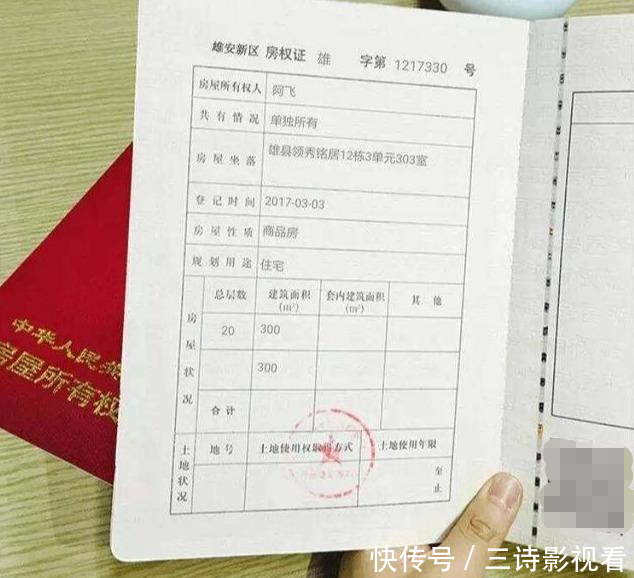 雄安新区 房权证 雄 字第 1217330 号
房屋所有权人 阿飞
共有情况 单独所有
房屋坐落 雄县领秀铭居12栋3单元303室
登记时间 2017-03-03
房屋性质 商品房
规划用途 住宅
房屋状况
总层数 建筑面积(m²) 套内建筑面积(m²) 其他
20 300
300
合计
土地状况
地号 土地使用权取得方式 土地使用年限
至
止
中华人民共
房屋所有权
快传号/三诗影视看